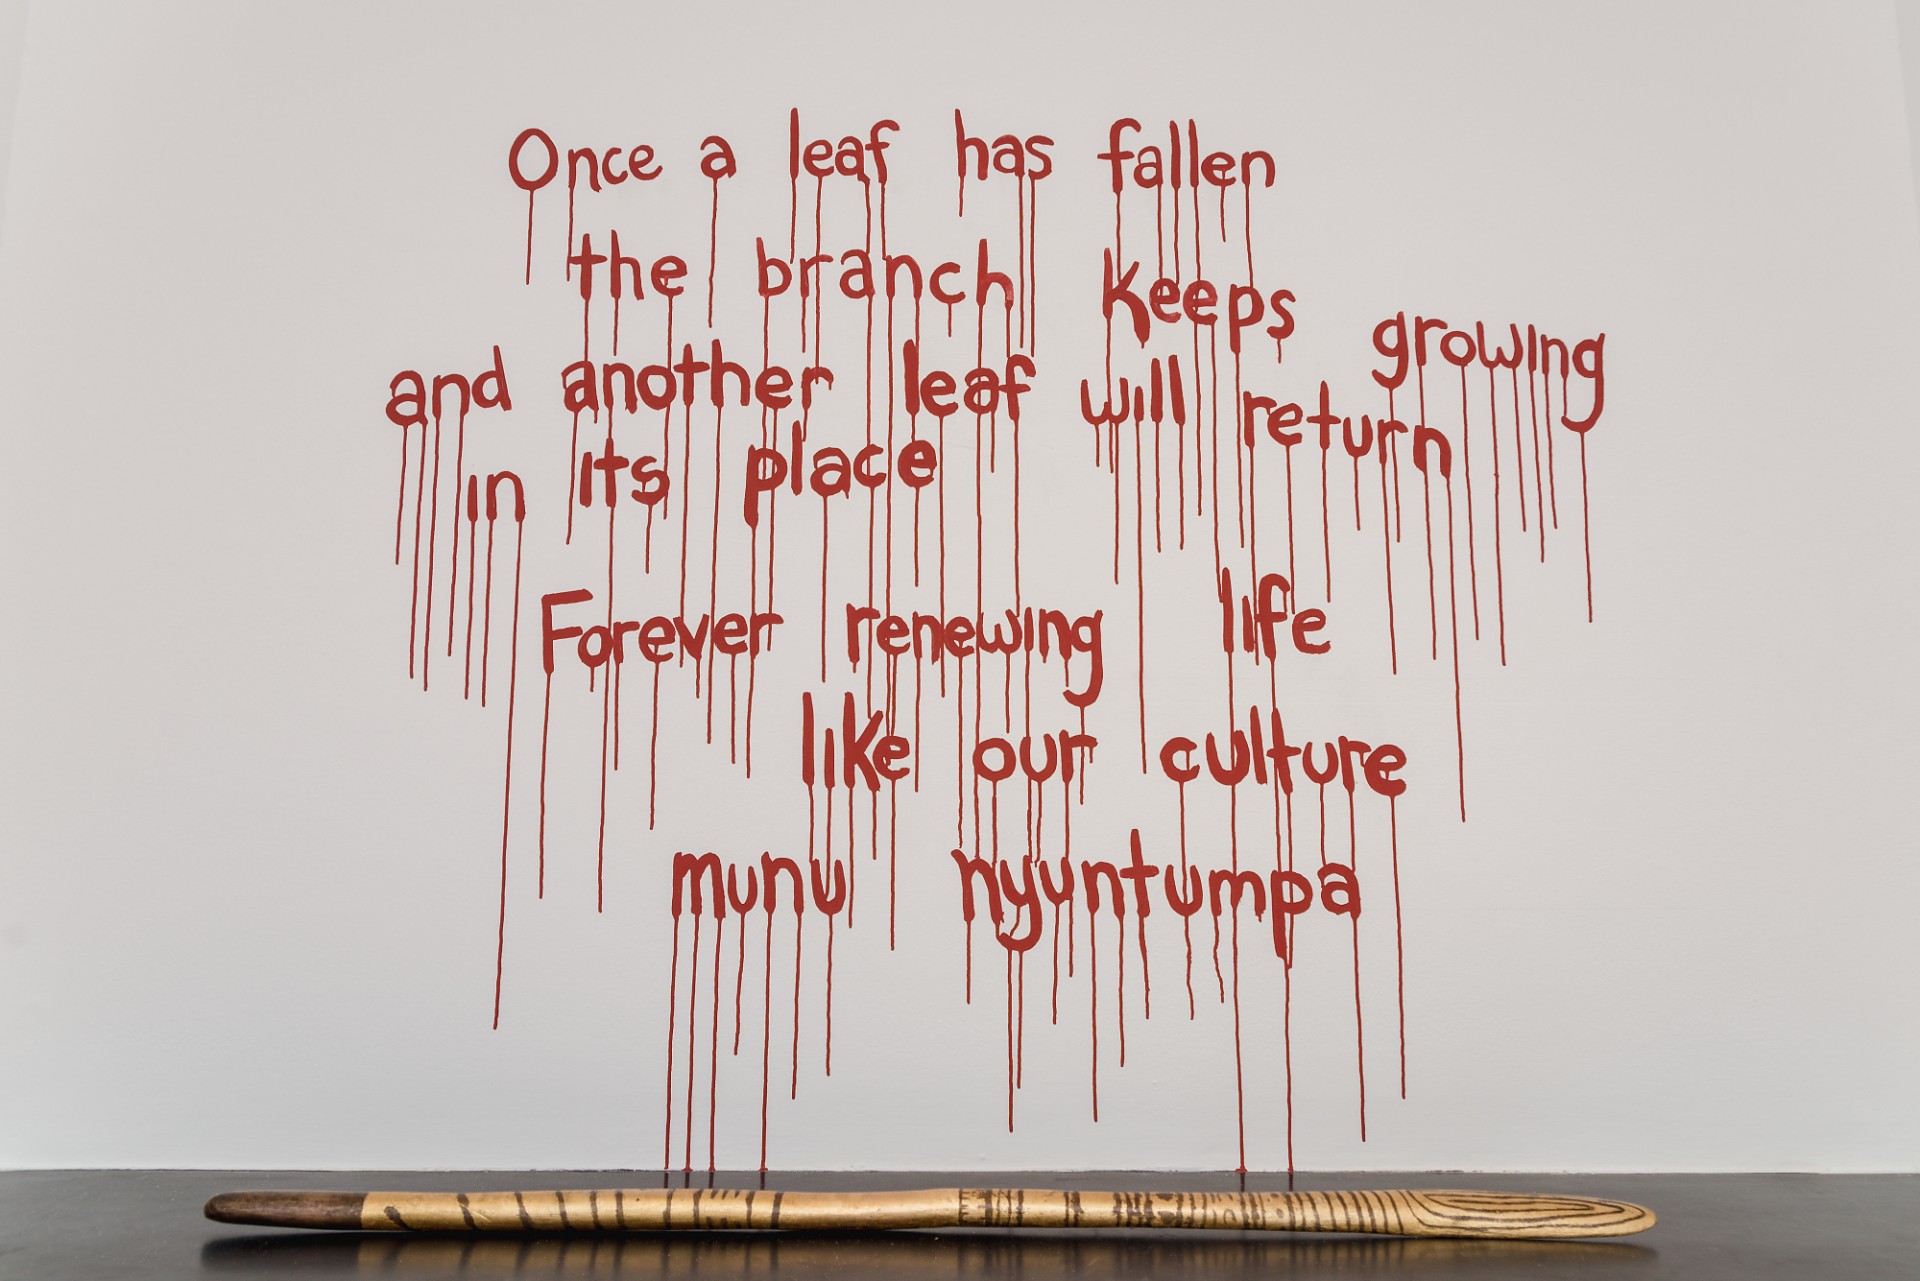 Once a leaf has fallen
the branch keeps growing
and another leaf will return
in its place
Forever renewing life
like our culture
munu nyuntumpa